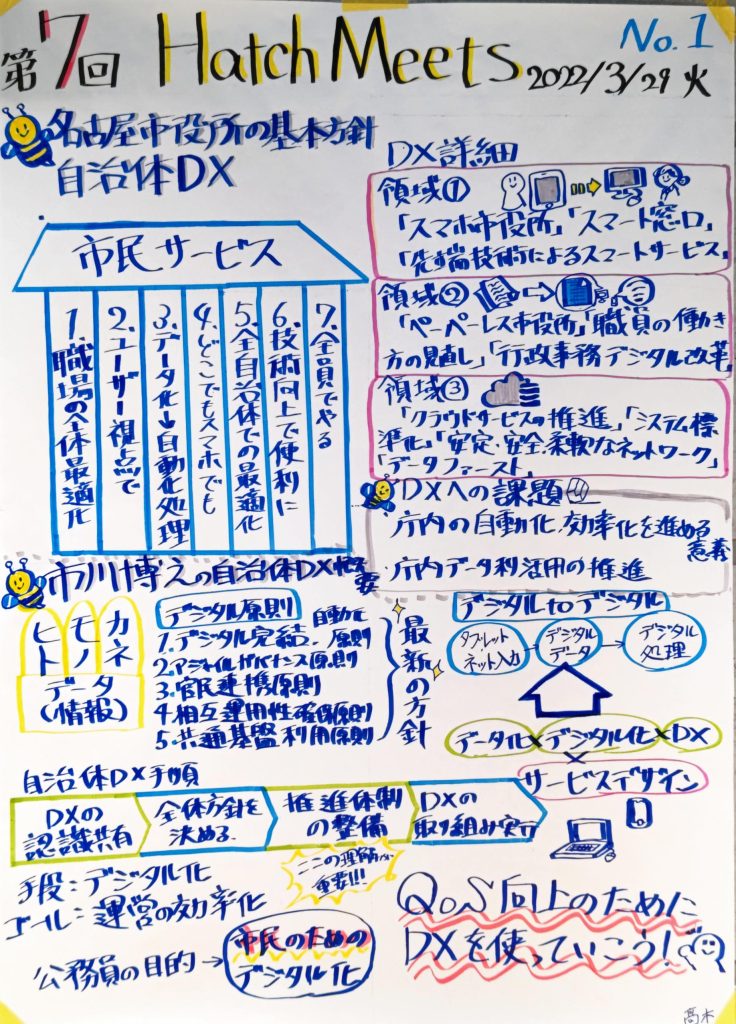 第7回 Hatch Meets No.1
2022/3/29 火
名古屋市役所の基本方針
自治体DX
市民サービス
1.職場の全体最適化
2.ユーザー視点で
3.データ化→自動化処理
4.どこでもスマホでも
5.全自治体での最適化
6.技術向上で便利に
7.全員でやる
DX詳細
領域①
「スマホ市役所」「スマート窓口」
「先端技術によるスマートサービス」
領域②
「ペーパーレス市役所」「職員の働き
方の見直し」「行政事務デジタル改革」
領域③
「クラウドサービスの推進」「システム標
準化」「安定・安全.柔軟なネットワーク」
「データファースト」
DXへの課題
・庁内の自動化.効率化を進める
意義
・庁内データ利活用の推進
市川博之の自治体DX概要
ヒト
モノ
カネ
データ
(情報)
デジタル原則
1.デジタル完結.自動化原則
2.アジャイルガバナンス原則
3.官民連携原則
4.相互運用性確保原則
5.共通基盤利用原則
最新の方針
デジタルtoデジタル
タブレット
ネット入力
デジタル
データ
デジタル
処理
データ化×デジタル化×DX
×
サービスデザイン
自治体DX手順
DXの
認識共有
全体方針を
決める
推進体制
の整備
DXの
取り組み実行
ここの理解が
重要!!!
手段：デジタル化
ゴール：運営の効率化
公務員の目的→
市民のための
デジタル化
QoS向上のために
DXを使っていこう!
高木